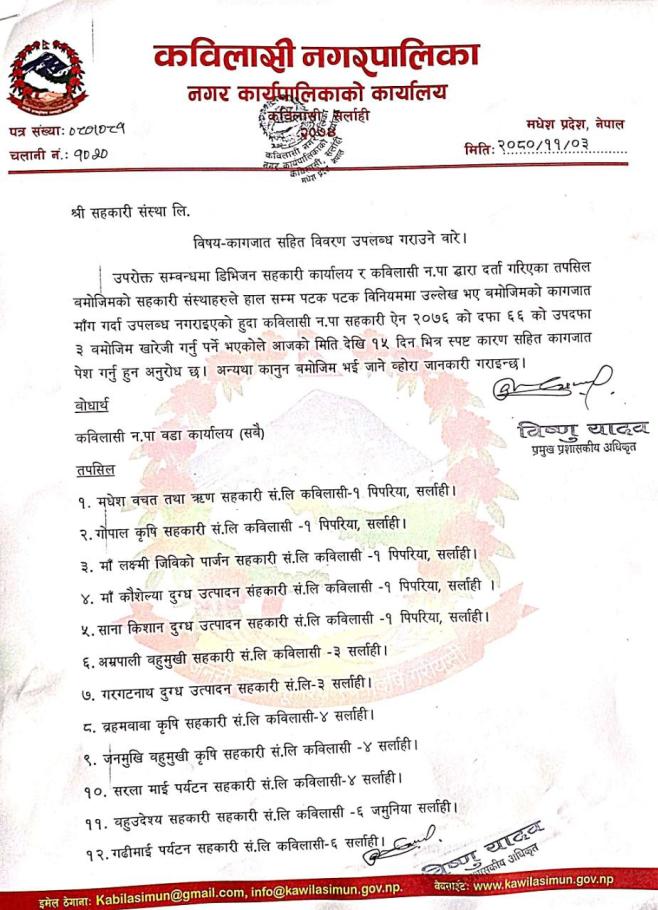 कविलासी नगरपालिका
नगर कार्यपालिकाको कार्यालय
कविलासी, सर्लाही
२०७४
मधेश प्रदेश, नेपाल
पत्र संख्या: ०८०/०८१
मिति: २०८०/११/०३
चलानी नं.: १०२०
श्री सहकारी संस्था लि.
विषय-कागजात सहित विवरण उपलब्ध गराउने वारे।
उपरोक्त सम्वन्धमा डिभिजन सहकारी कार्यालय र कविलासी न.पा द्धारा दर्ता गरिएका तपसिल
बमोजिमको सहकारी संस्थाहरुले हाल सम्म पटक पटक विनियममा उल्लेख भए बमोजिमको कागजात
माँग गर्दा उपलब्ध नगराइएको हुदा कविलासी न.पा सहकारी ऐन २०७६ को दफा ६६ को उपदफा
३ वमोजिम खारेजी गर्नु पर्ने भएकोले आजको मिति देखि १५ दिन भित्र स्पष्ट कारण सहित कागजात
पेश गर्नु हुन अनुरोध छ। अन्यथा कानुन बमोजिम भई जाने व्होरा जानकारी गराइन्छ।
बोधार्थ
विष्णु यादव
प्रमुख प्रशासकीय अधिकृत
कविलासी न.पा वडा कार्यालय (सबै)
तपसिल
१. मधेश वचत तथा ऋण सहकारी सं.लि कविलासी-१ पिपरिया, सर्लाही।
२. गोपाल कृषि सहकारी सं.लि कविलासी -१ पिपरिया, सर्लाही।
३. माँ लक्ष्मी जिविको पार्जन सहकारी सं.लि कविलासी -१ पिपरिया, सर्लाही।
४. माँ कौशेल्या दुग्ध उत्पादन संहकारी सं.लि कविलासी -१ पिपरिया, सर्लाही ।
५. साना किशान दुग्ध उत्पादन सहकारी सं.लि कविलासी -१ पिपरिया, सर्लाही।
६. अम्रपाली वहुमुखी सहकारी सं.लि कविलासी -३ सर्लाही।
७. गरगटनाथ दुग्ध उत्पादन सहकारी सं.लि-३ सर्लाही।
८. व्रहमवावा कृषि सहकारी सं.लि कविलासी-४ सर्लाही।
९. जनमुखि वहुमुखी कृषि सहकारी सं.लि कविलासी -४ सर्लाही।
१०. सरला माई पर्यटन सहकारी सं.लि कविलासी-४ सर्लाही।
११. वहुउदेश्य सहकारी सहकारी सं.लि कविलासी -६ जमुनिया सर्लाही।
१२. गढीमाई पर्यटन सहकारी सं.लि कविलासी-६ सर्लाही।
विष्णु यादव
प्रशासकीय अधिकृत
इमेल ठेगाना: Kabilasimun@gmail.com, info@kawilasimun.gov.np. वेवसाईट: www.kawilasimun.gov.np